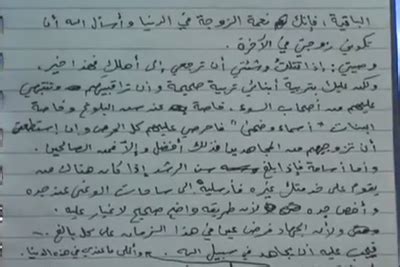 الباقية، فإنك نعمة الزوجة في الدنيا وأسأل الله أن
تكوني زوجتي في الآخرة.
وصيتي: إذا قتلت وشئتي أن ترجعي إلى أهلك فهذا خير،
ولكن عليك بتربية أبنائي تربية صحيحة وأن تراقبيهم وتنتبهي
عليهم من أصحاب السوء، خاصة عند سن البلوغ وخاصة
البنات "أسماء وضحى" فاحرصي عليهم كل الحرص وإن إستطعتي
أن تزوجيهم من المجاهدين فذلك أفضل وإلا فمن الصالحين.
وأما أسامة فإذا بلغ سن الرشد إذا كان هناك من
يقوم على خدمتك غيره فأرسليه إلى ساحات الوغى عند جده
وأخص جده لأن طريقه واضح صحيح لا غبار عليه.
ولأن الجهاد فرض عين في هذا الزمان على كل بالغ
فيجب عليه أن يجاهد في سبيل الله. في هذه الدنيا.